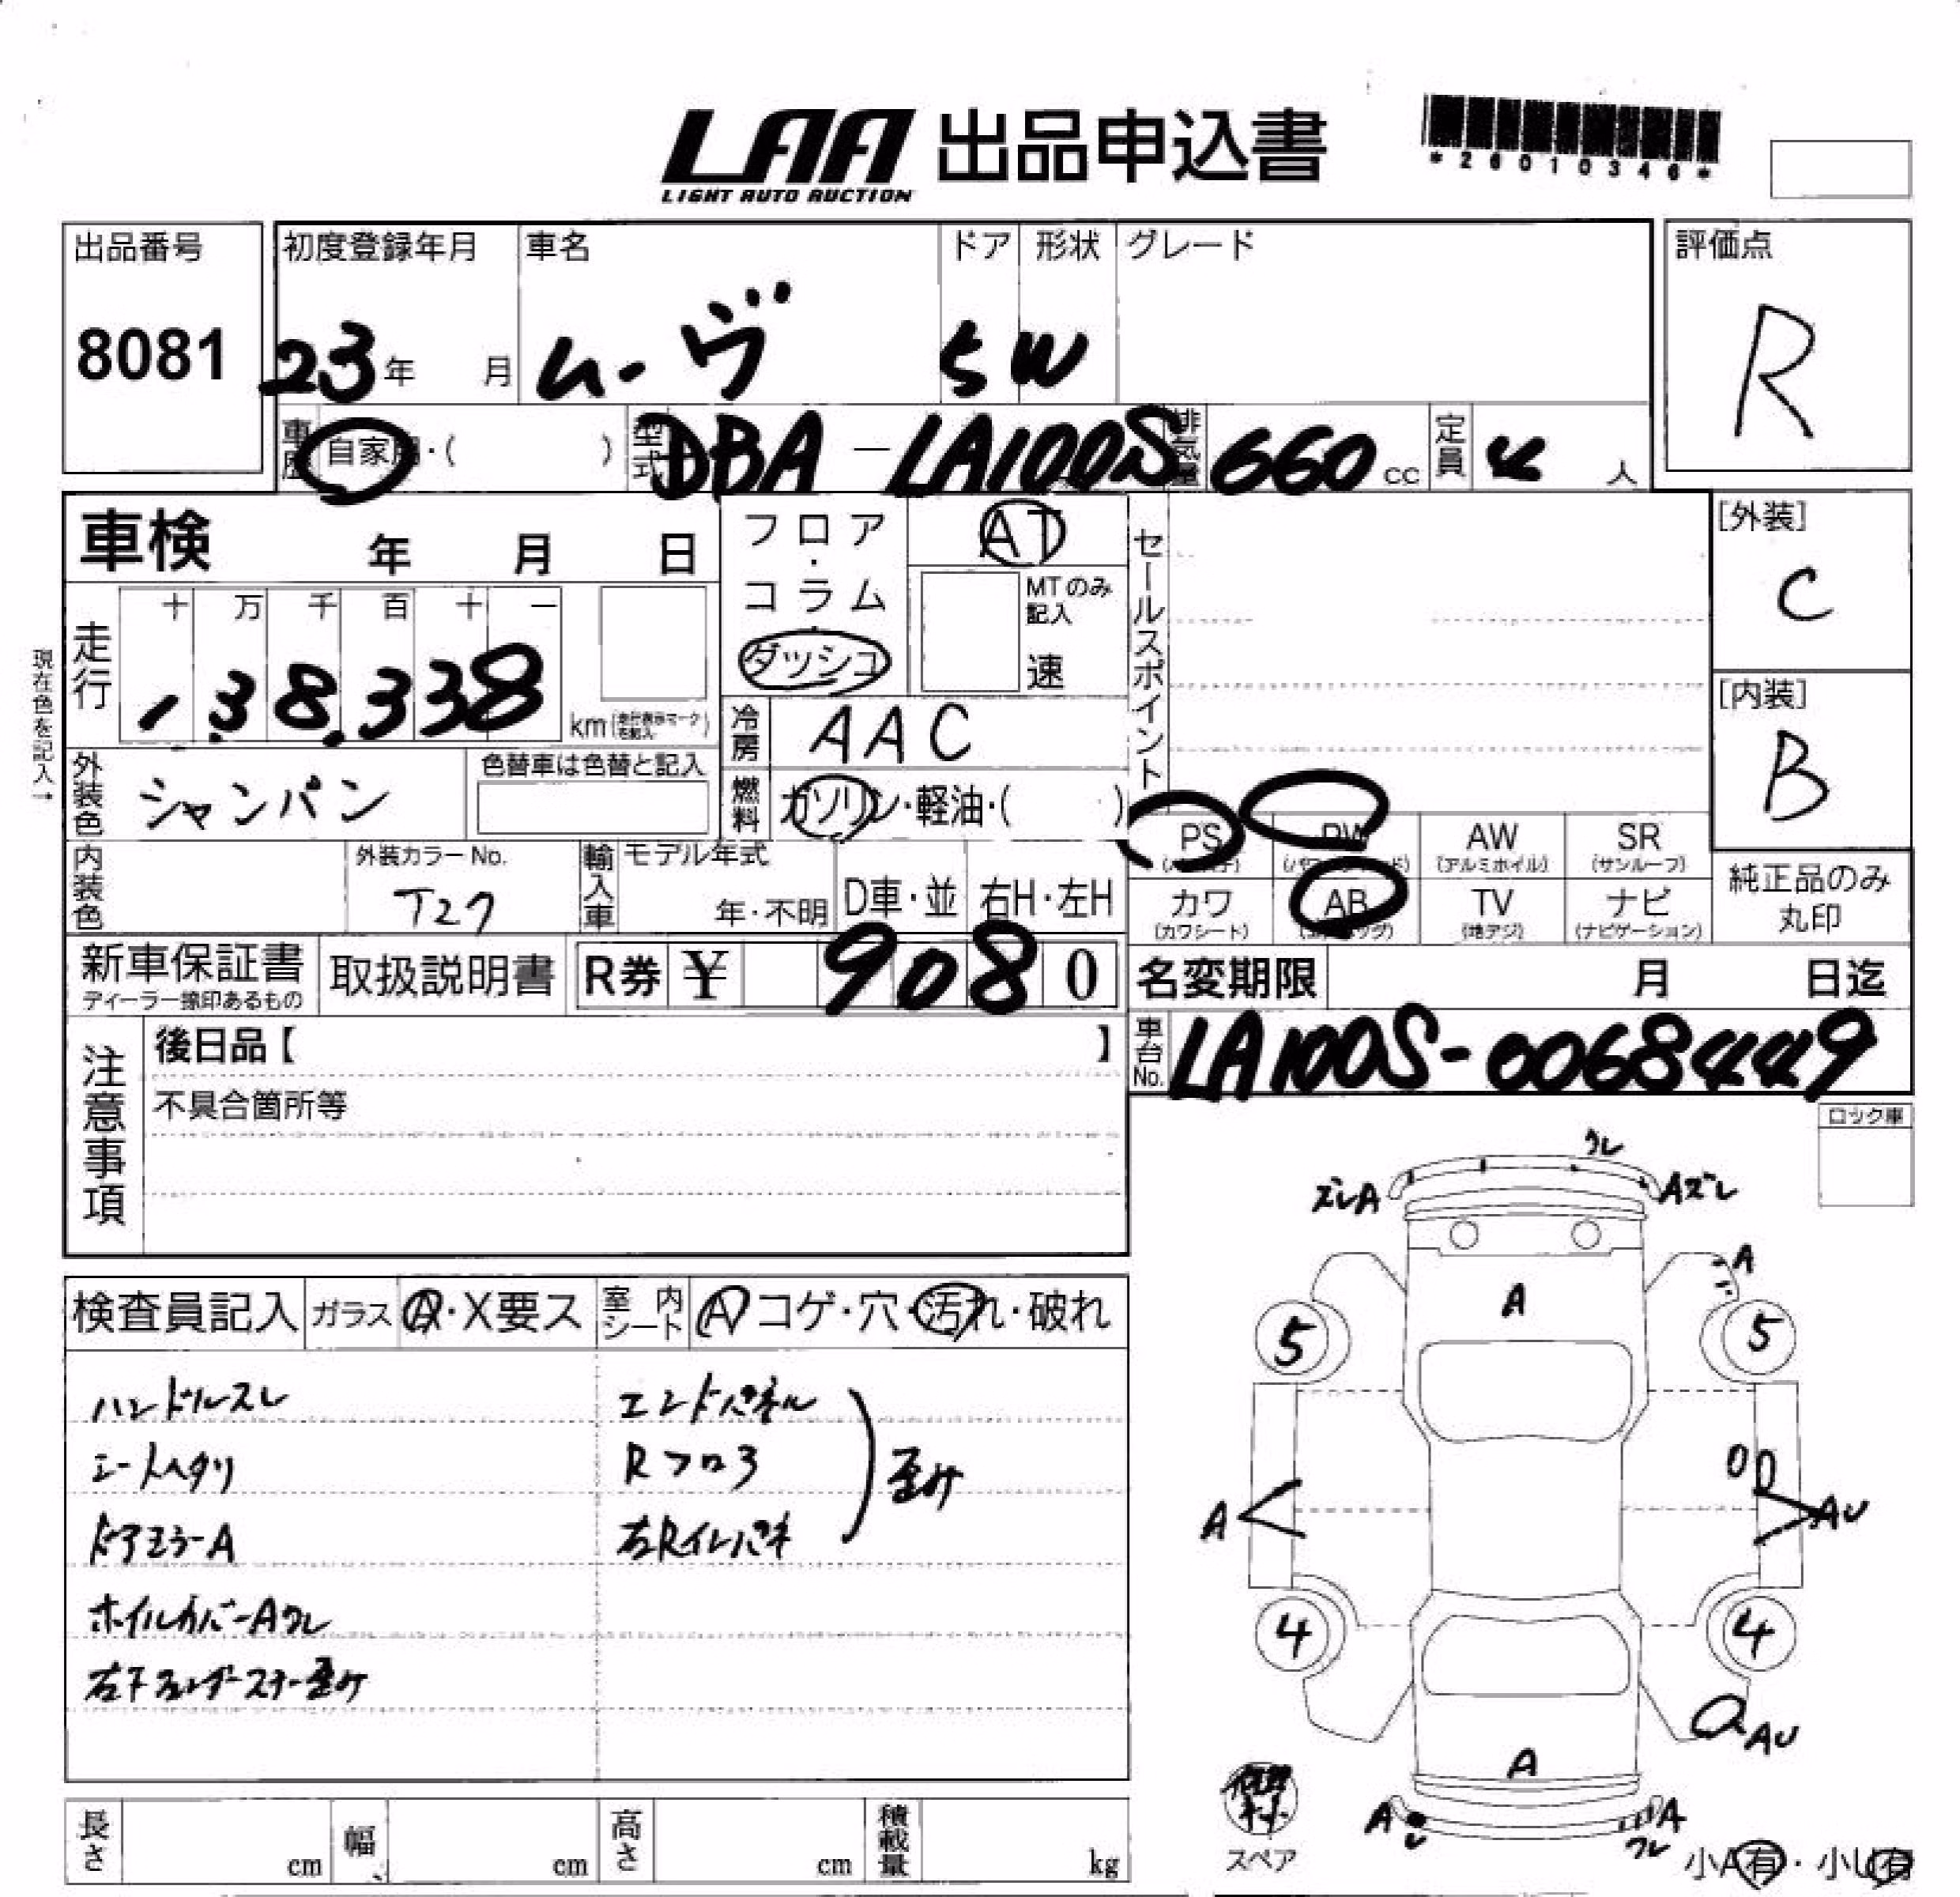 LAA 出品申込書
LIGHT AUTO AUCTION
*26010346*
出品番号 初度登録年月 車名 ドア 形状 グレード 評価点
8081 23年 月 ムーヴ 5 W R
車歴 自家用・( ) 型式 DBA-LA100S 排気量 660 cc 定員 4 人
車検 年 月 日
フロア・コラム・ダッシュ
AT
MTのみ記入
速
セールスポイント
[外装]
C
[内装]
B
現在色を記入→
走行 十 万 千 百 十 一
1 3 8, 3 3 8 km(走行表示マークを記入)
冷房 AAC
外装色 シャンパン 色替車は色替と記入
燃料 ガソリン・軽油・( )
PS PW AW (アルミホイル) SR (サンルーフ)
カワ (カワシート) AB TV (地デジ) ナビ (ナビゲーション)
純正品のみ丸印
内装色 外装カラーNo. T27 輸入車 モデル年式 年・不明 D車・並 右H・左H
新車保証書 ディーラー捺印あるもの 取扱説明書 R券 ¥ 9080
名変期限 月 日迄
車台No. LA100S-0068449
注意事項
後日品【 】
不具合箇所等
ロック車
検査員記入 ガラス A・X要ス 室内シート A コゲ・穴・汚れ・破れ
ハンドルスレ エンドパネル
シートヘタリ Rフロア
ドアミラーA 右Rインパネ
歪み
ホイルカバーAワレ
右Fフェンダーステー歪み
ワレ
ズレA Aズレ
A
A
5 5
A AU
4 4
AU
A
A A
ワレ
スペア
小A有・小U有
長さ cm 幅 cm 高さ cm 積載量 kg